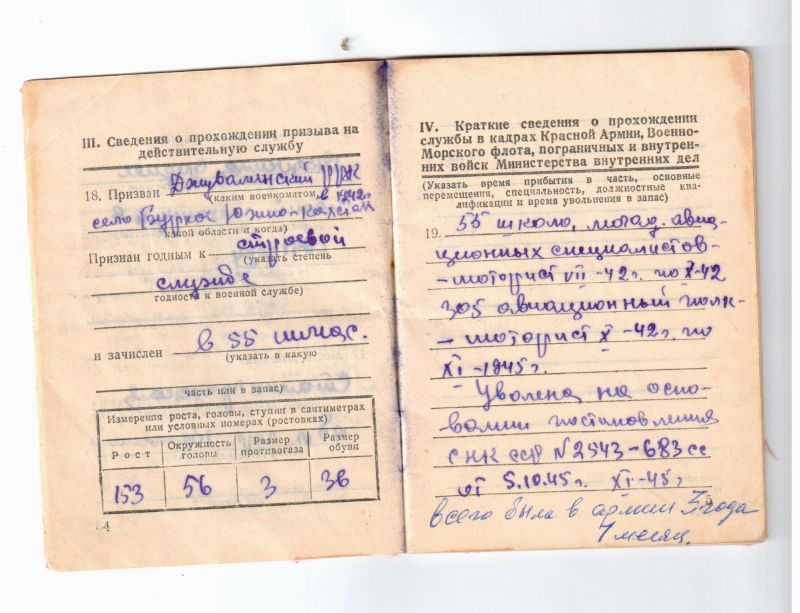 III. Сведения о прохождении призыва на
действительную службу
18. Призван Джувалинский РВК
(каким военкоматом,
в 1942г.
село Бурное Южно-Казстан
какой области и когда)
Признан годным к строевой
(указать степень
службе
годности к военной службе)
и зачислен в 55 шмас.
(указать в какую
часть или в запас)
Измерения роста, головы, ступни в сантиметрах
или условных номерах (ростовках)
Рост Окружность головы Размер противогаза Размер обуви
153 56 3 36
64
IV. Краткие сведения о прохождении
службы в кадрах Красной Армии, Военно-
Морского флота, пограничных и внутрен-
них войск Министерства внутренних дел
(Указать время прибытия в часть, основные
перемещения, специальность, должностные ква-
лификации и время увольнения в запас)
19. 55 школа, млад. авиа-
ционных специалистов-
-моторист VII-42г. по X-42
305 авиационный полк-
- моторист X-42г. по
XI-1945г.
Уволена на осно-
вании постановления
СНК ССР N2543-683сс
от 5.10.45г. XI-45г
5
всего была в армии 3 года
месяц.